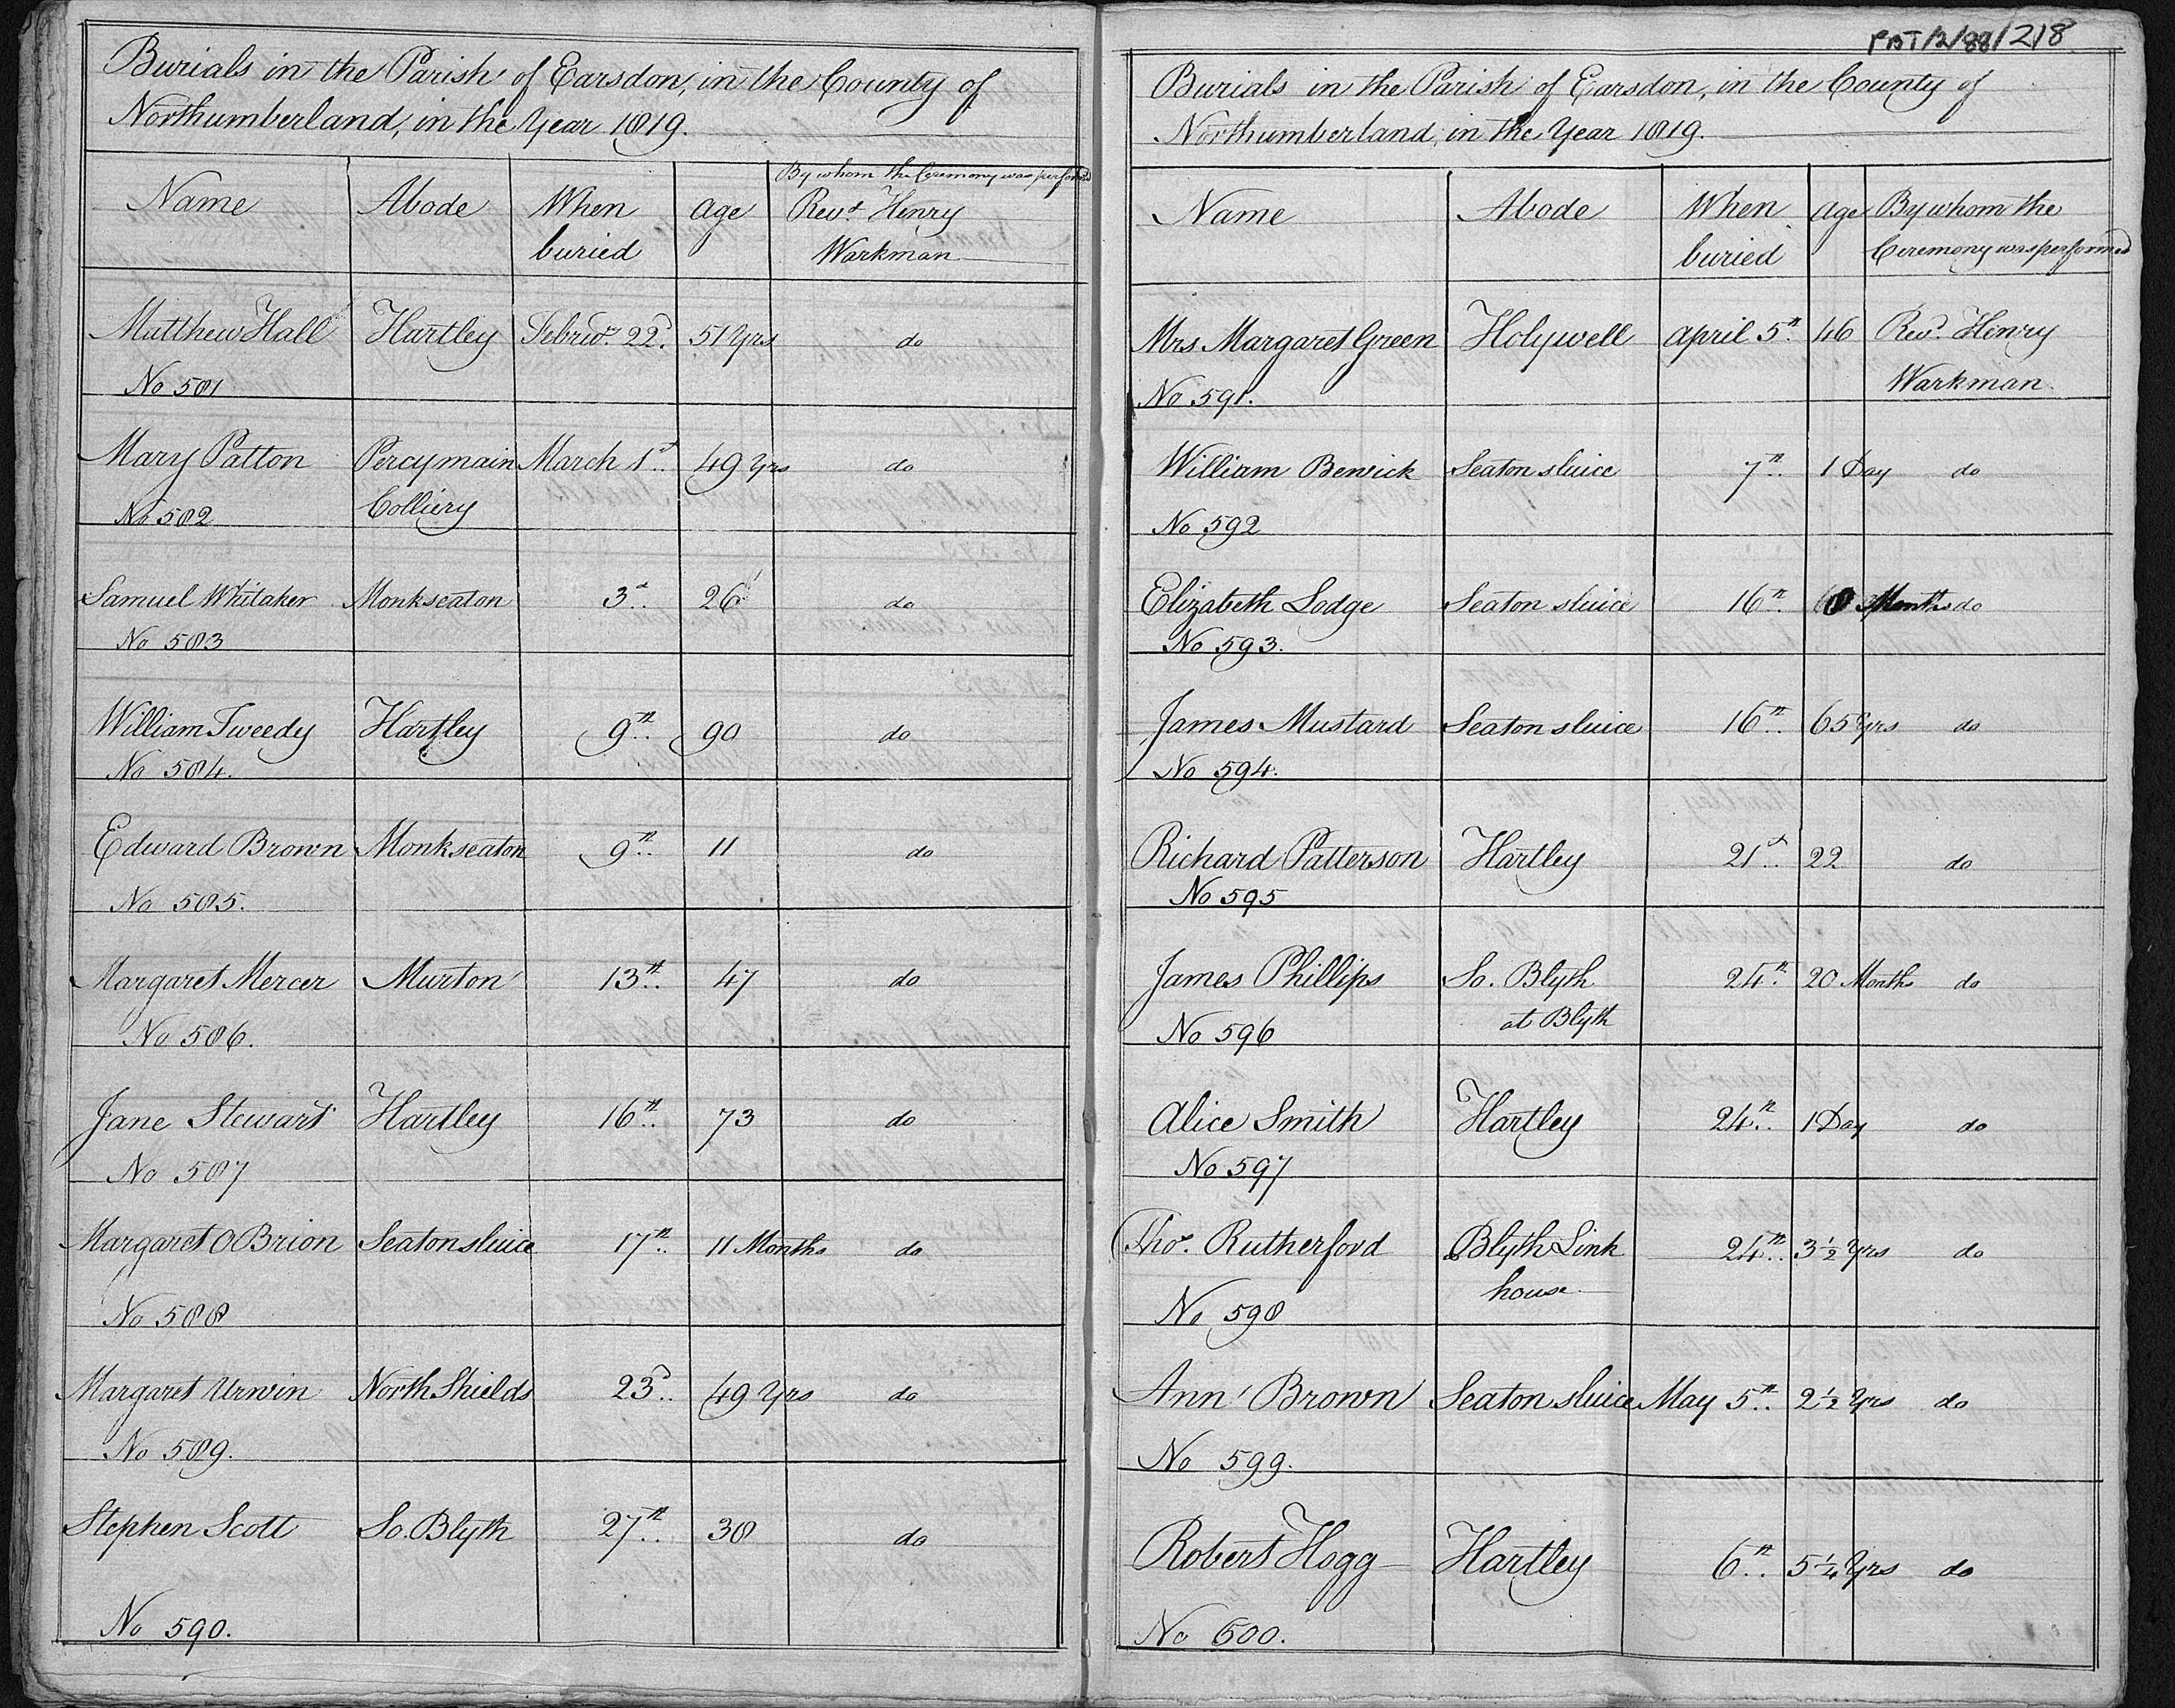 Burials in the Parish of Earsdon, in the County of
Northumberland, in the Year 1819.
Name Abode When buried age By whom the Ceremony was performed
Revd Henry Warkman
Matthew Hall Hartley Febru. 22d. 51 Yrs do
No 581
Mary Patton Percymain March 1st 49 Yrs do
No 582 Colliery
Samuel Whitaker Monkseaton 3d 26 do
No 583
William Tweedy Hartley 9th 90 do
No 584.
Edward Brown Monkseaton 9th 11 do
No 585.
Margaret Mercer Murton 13th 47 do
No 586.
Jane Stewart Hartley 16th 73 do
No 587
Margaret O Brion Seaton sluice 17th 11 Months do
No 588
Margaret Urwin North Shields 23d 49 Yrs do
No 589.
Stephen Scott So. Blyth 27th 38 do
No 590.
PBT/2/88/218
Burials in the Parish of Earsdon, in the County of
Northumberland, in the Year 1819.
Name Abode When buried age By whom the
Ceremony was performed
Mrs Margaret Green Holywell april 5th 46 Revd. Henry
No 591. Warkman.
William Bewick Seaton sluice 7th 1 Day do
No 592
Elizabeth Lodge Seaton sluice 16th Months do
No 593.
James Mustard Seaton sluice 16th 65 Yrs do
No 594.
Richard Patterson Hartley 21st 22 do
No 595
James Phillips So. Blyth 24th 20 Months do
No 596 at Blyth
Alice Smith Hartley 24th 1 Day do
No 597
Thos. Rutherford Blyth Link 24th 3 1/2 Yrs do
house
No 598
Ann Brown Seaton sluice May 5th 2 1/2 Yrs do
No 599.
Robert Hogg Hartley 6th 5 1/4 Yrs do
No 600.